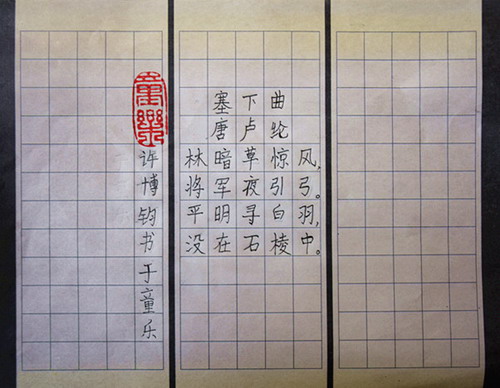 塞下曲
唐卢纶
林暗草惊风，
将军夜引弓。
平明寻白羽，
没在石棱中。
童乐
许博钧书于童乐